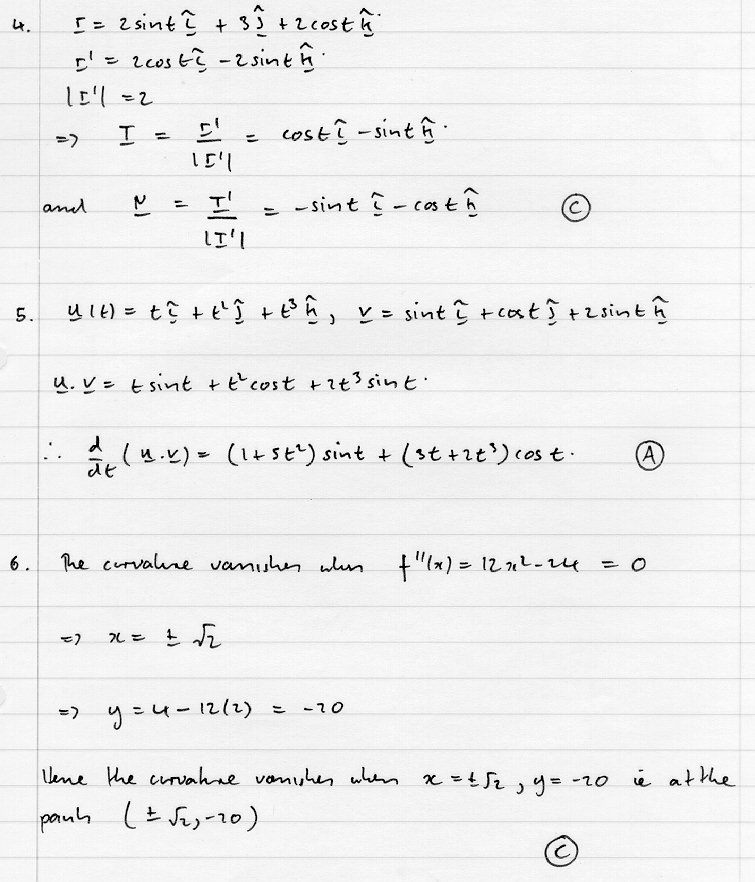 4. r = 2sint î + 3ĵ + 2cost k̂.
r' = 2cost î - 2sint k̂.
|r'| = 2
=> T = r'/|r'| = cost î - sint k̂.
and N = T'/|T'| = -sint î - cost k̂ (C)
5. u(t) = t î + t² ĵ + t³ k̂, v = sint î + cost ĵ + 2sint k̂
u.v = t sint + t² cost + 2t³ sint.
∴ d/dt (u.v) = (1+5t²) sint + (3t+2t³) cos t. (A)
6. The curvature vanishes when f''(x) = 12x² - 24 = 0
=> x = ± √2
=> y = 4 - 12(2) = -20
Hence the curvature vanishes when x = ±√2, y = -20 ie at the
points (±√2, -20)
(C)